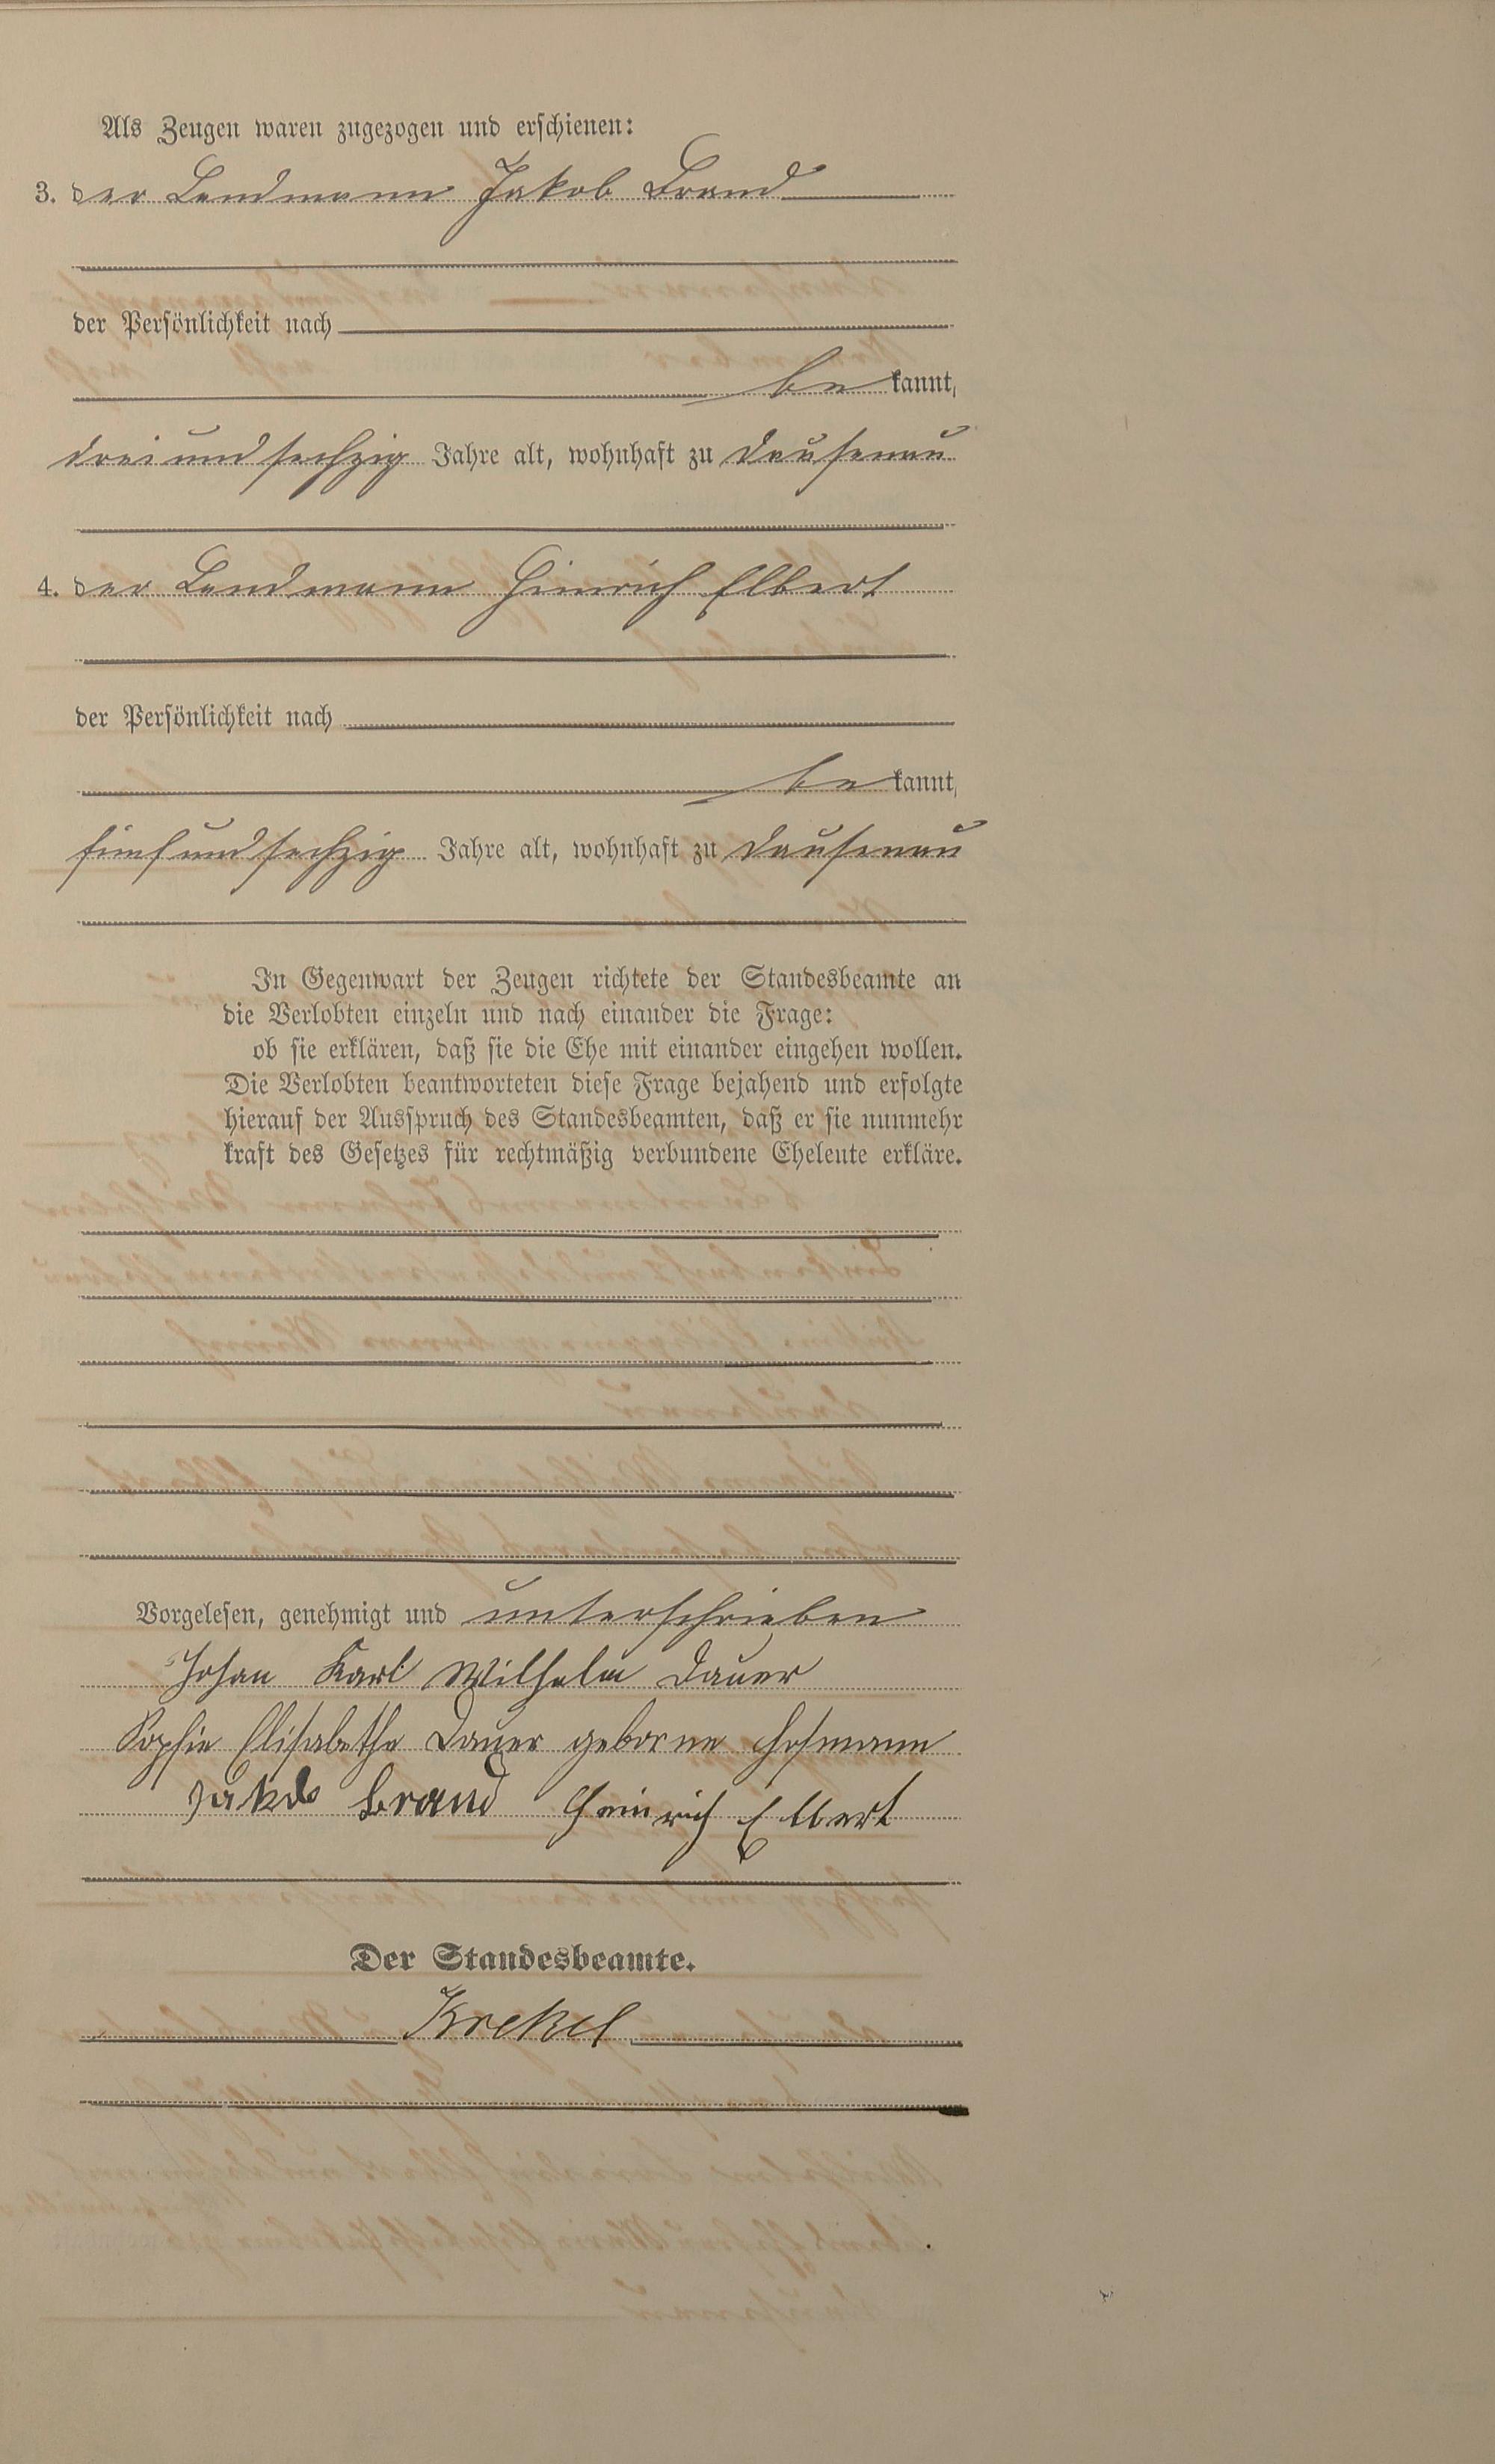 Als Zeugen waren zugezogen und erschienen:
3. der Landmann Jakob Brand
der Persönlichkeit nach
be kannt,
dreiundsechzig Jahre alt, wohnhaft zu Dausenau
4. der Landmann Heinrich Elbert
der Persönlichkeit nach
be kannt,
fünfundsechzig Jahre alt, wohnhaft zu Dausenau
In Gegenwart der Zeugen richtete der Standesbeamte an
die Verlobten einzeln und nach einander die Frage:
ob sie erklären, daß sie die Ehe mit einander eingehen wollen.
Die Verlobten beantworteten diese Frage bejahend und erfolgte
hierauf der Ausspruch des Standesbeamten, daß er sie nunmehr
kraft des Gesetzes für rechtmäßig verbundene Eheleute erkläre.
Vorgelesen, genehmigt und unterschrieben
Johan Karl Wilhelm Dauer
Sophie Elisabethe Dauer geborne Hofmann
Jakob Brand Heinrich Elbert
Der Standesbeamte.
Krekel